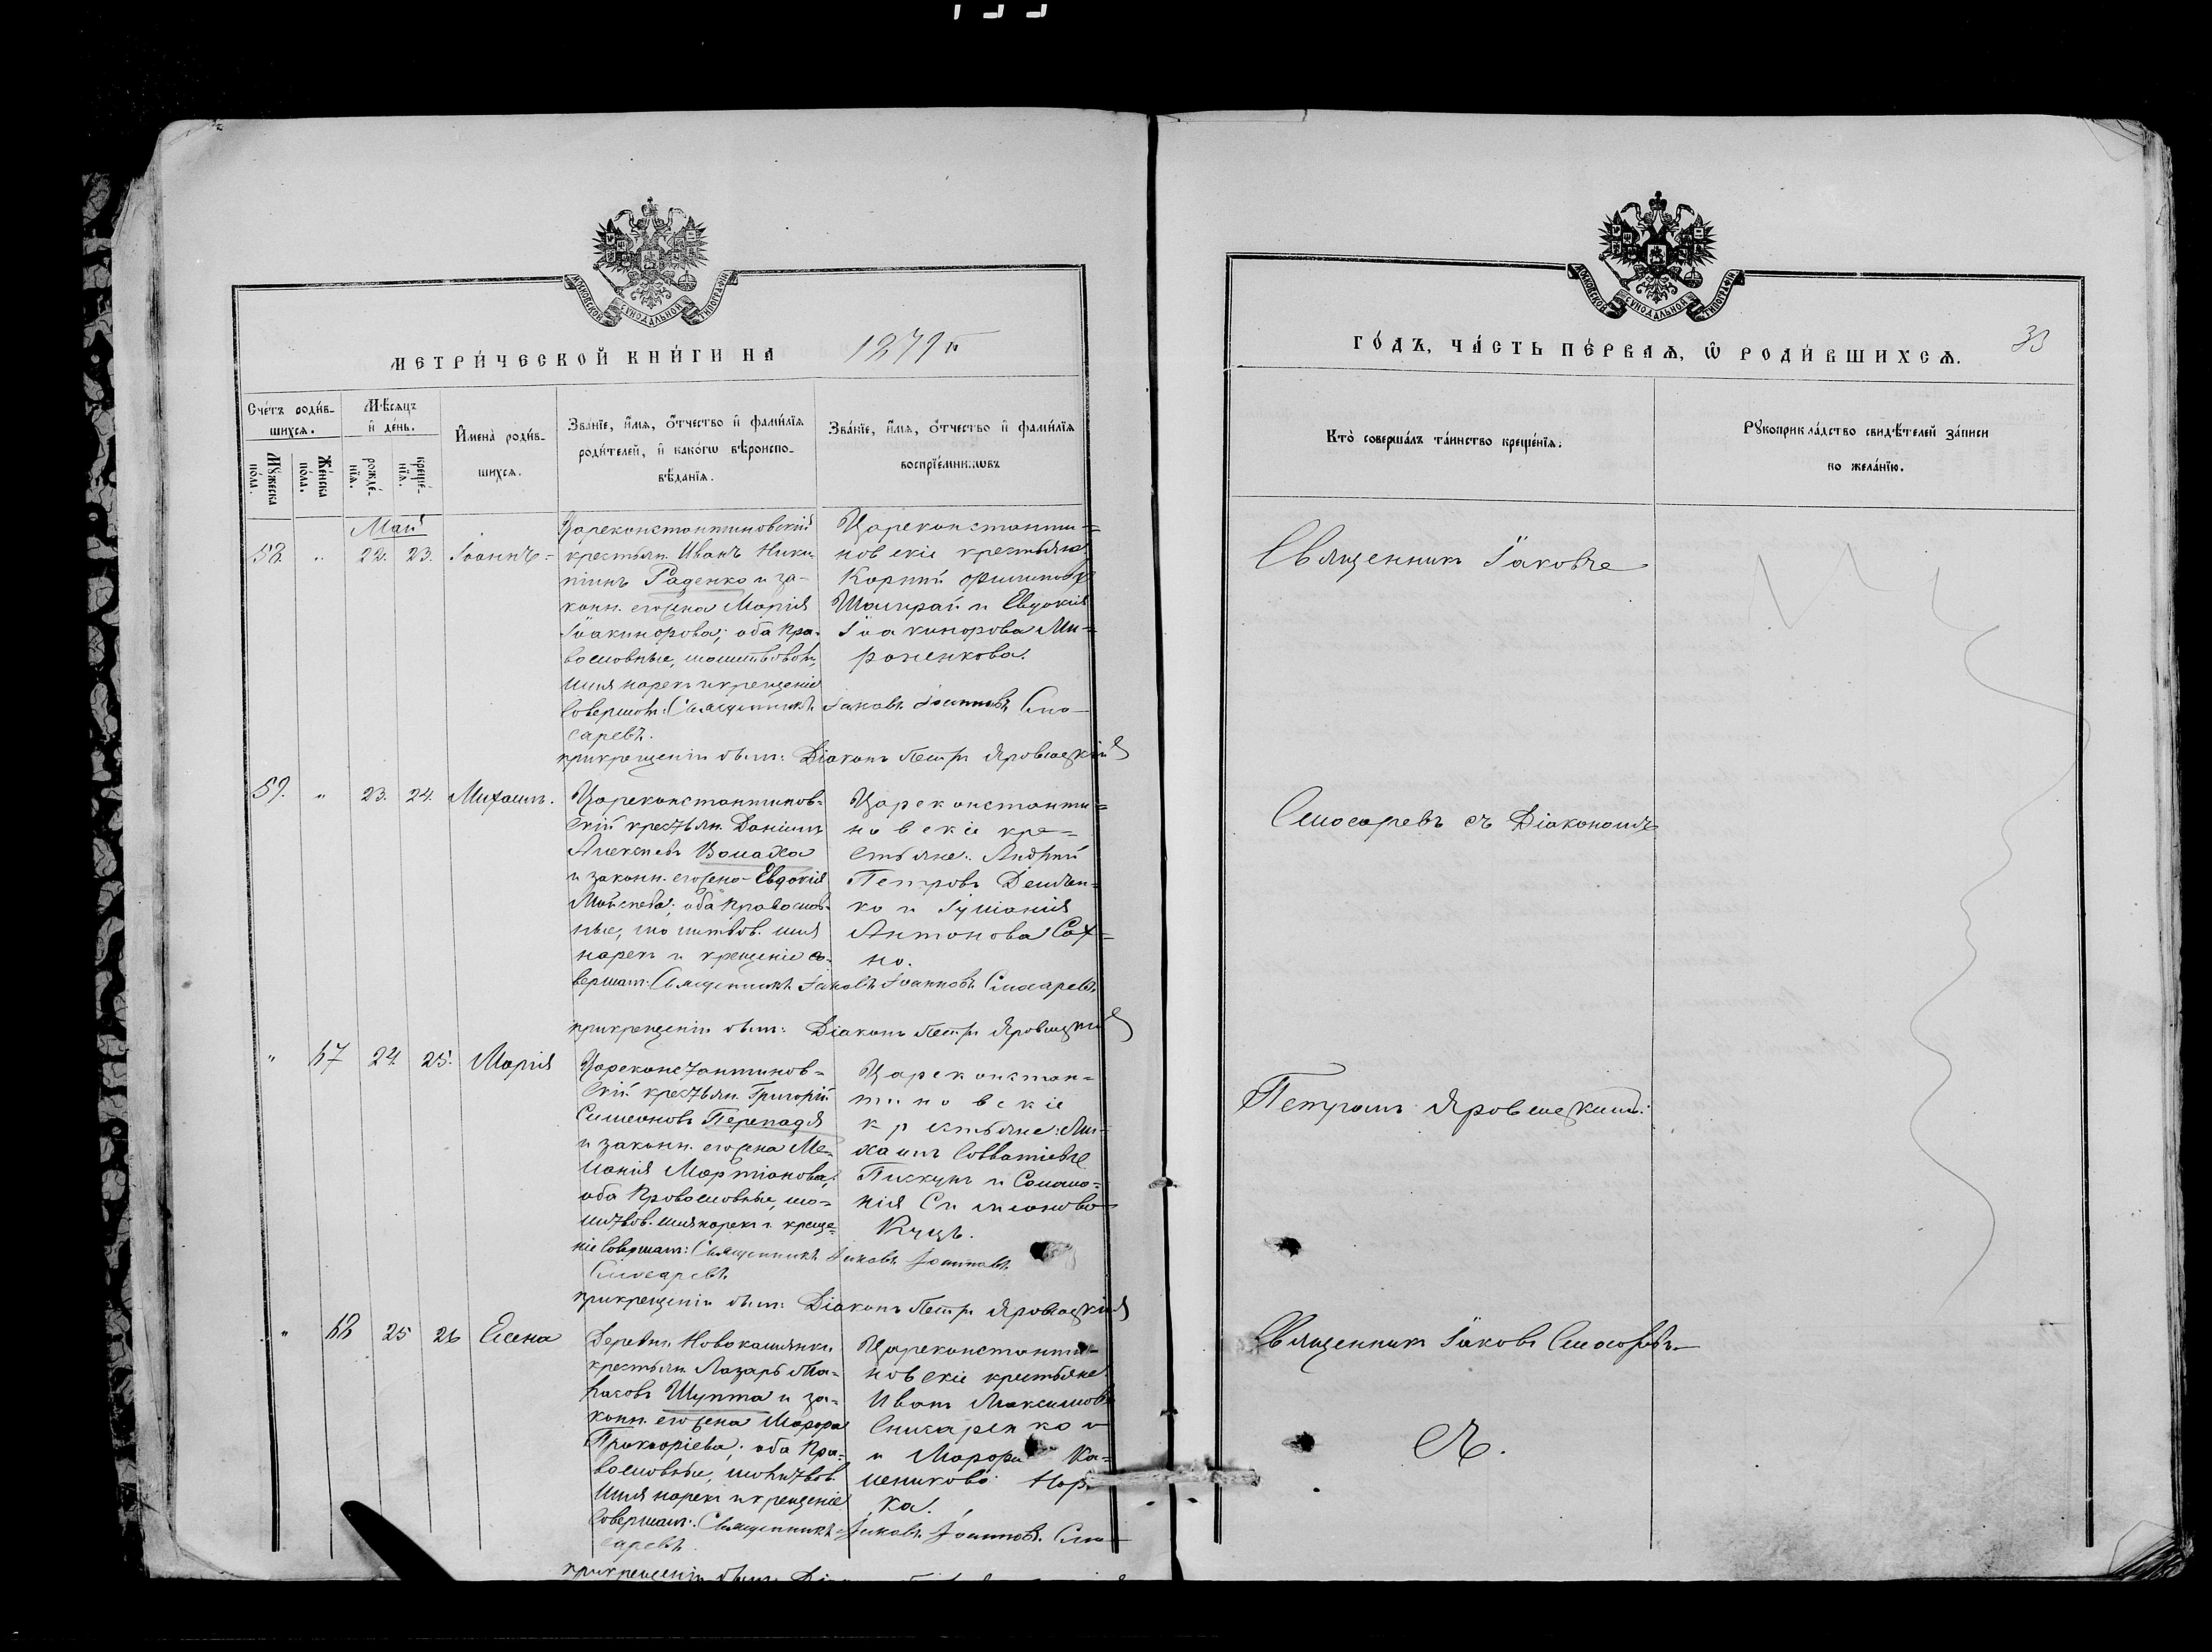 МОСКОВСКОЙ СѴНОДАЛЬНОЙ ТИПОГРАФІИ
МЕТРИ́ЧЕСКОЙ КНИ́ГИ НА 1879 й
Сче́тъ роди́в-
шихсѧ.
Мѣ́сѧцъ
и҆ де́нь.
И҆мена̀ роди́в-
шихсѧ.
Зва́нїе, и҆́мѧ, ѻ҆́тчество и҆ фами́лїѧ
роди́телей, и҆ како́гѡ вѣроиспо-
вѣ́данїѧ.
Зва́нїе, и҆́мѧ, ѻ҆́тчество и҆ фами́лїѧ
воспрїе́мникѡвъ
Мꙋ́жеска
по́ла.
Же́нска
по́ла.
рожде́-
нїѧ.
креще́-
нїѧ.
Май
58. „ 22. 23. Іоаннъ
Цареконстантиновскій
крестьян. Иванъ Ники-
тинъ Гаденко и за-
конн. его жена Марія
Іоакимова; оба пра-
вославные, молитвовол,
имя нарек и крещеніе
совершал: Священникъ Іаковъ Іоанновъ Слю-
саревъ.
при крещеніи был: Діаконъ Петръ Яровицкій
Цареконстанти-
новскіе крестьяне
Карпъ Филиповъ
Шамрай и Евдокія
Ми-
роненкова.
59. „ 23. 24. Михаил.
Цареконстантинов-
скій крестьян. Даніилъ
Алексѣев Вомаха
и законн. его жена Евдокія
Моисеева; оба православ-
ные, молитвов. имя
нарек и крещеніе со-
вершал: Священникъ Іаковъ Іоанновъ Слюсаревъ.
при крещеніи был: Діаконъ Петръ Яровицкій
Цареконстанти-
новскіе кре-
стьяне: Андрей
Петровъ Демчен-
ко и Іуліанія
Антонова Сах-
но.
„ 67 24. 25. Марія
Цареконстантинов-
скій крестьян. Григорій
Симеоновъ Перепадя
и законн. его жена Ме-
ланія Мартіанова;
оба православные, мо-
литвов. имя нарек и креще-
ніе совершал: Священникъ Іаковъ Іоанновъ
Слюсаревъ
при крещеніи был: Діаконъ Петръ Яровицкій
Цареконстан-
тиновскіе
крестьяне: Ми-
хаилъ Савватіевъ
Пискунъ и Соломо-
нія Симеонова
Куцъ.
„ 68 25 26 Елена
Деревни Новокаменки
крестьян. Лазарь
Шупта и за-
конн. его жена Марфа
Прокофіева; оба пра-
вославные, молитвов.
имя нарек и крещеніе
совершал: Священникъ Іаковъ Іоанновъ Слю-
саревъ
при крещеніи был:
Цареконстанти-
новскіе крестьяне
Иванъ Максимовъ
и Марфа
ка.
МОСКОВСКОЙ СѴНОДАЛЬНОЙ ТИПОГРАФІИ
ГО́ДЪ, ЧА́СТЬ ПЕ́РВАѦ, Ѽ РОДИ́ВШИХСѦ. 33
Кто̀ соверша́лъ та́инство креще́нїѧ.
Рꙋкоприкла́дство свидѣ́телей за́писи
по жела́нїю.
Священникъ Іаковъ
Слюсаревъ съ Діакономъ
Петромъ Яровицкимъ.
Священникъ Іаковъ Слюсаревъ
съ.